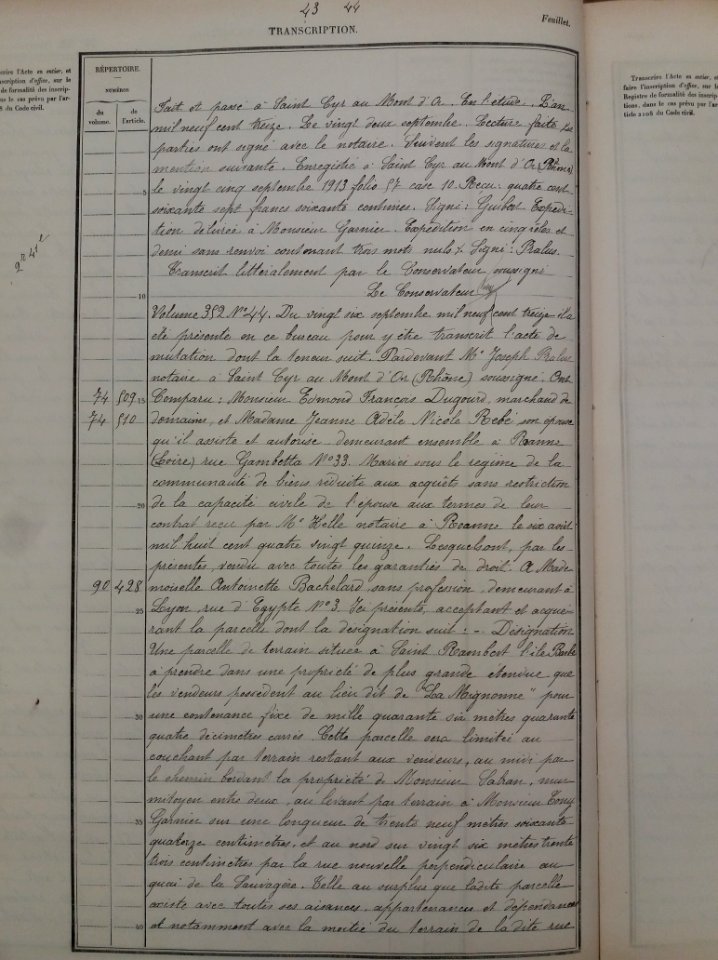 43 44
TRANSCRIPTION.
Feuillet.
crire l'Acte en entier, et
nscription d'office, sur le
de formalité des inscrip-
ns le cas prévu par l'ar-
8 du Code civil.
RÉPERTOIRE.
NUMÉROS
du volume. de l'article.
Transcrire l'Acte en entier, et
faire l'inscription d'office, sur le
Registre de formalité des inscrip-
tions, dans le cas prévu par l'ar-
ticle 2108 du Code civil.
Fait et passé à Saint Cyr au Mont d'Or. En l'étude. L'an
mil neuf cent treize. Le vingt deux septembre. Lecture faite les
parties ont signé avec le notaire. Suivent les signatures et la
mention suivante. Enregistré à Saint Cyr au Mont d'Or (Rhône)
5 le vingt cinq septembre 1913 folio 57 case 10. Reçu: quatre cent
soixante sept francs soixante centimes. Signé: Guibert. Expédi-
tion délivrée à Monsieur Garnier. Expédition en cinq rôles et
demi sans renvoi contenant trois mots nuls. Signé: Pralus.
Transcrit littéralement par le Conservateur soussigné
10 Le Conservateur
Volume 352 N° 44. Du vingt six septembre mil neuf cent treize il a
été présenté en ce bureau pour y être transcrit l'acte de
mutation dont la teneur suit. Pardevant Me Joseph Pralus
notaire à Saint Cyr au Mont d'Or (Rhône) soussigné. Ont
74 509 15 Comparu: Monsieur Edmond François Dugourd, marchand de
74 510 domaines, et Madame Jeanne Adèle Nicole Rebé son épouse
qu'il assiste et autorise demeurant ensemble à Roanne
(Loire) rue Gambetta N° 33. Mariés sous le régime de la
communauté de biens réduite aux acquêts sans restriction
20 de la capacité civile de l'épouse aux termes de leur
contrat reçu par Me Helle notaire à Roanne le six avril
mil huit cent quatre vingt quinze. Lesquels ont, par les
présentes, vendu avec toutes les garanties de droit. A Made-
90 428 moiselle Antoinette Bachelard, sans profession, demeurant à
25 Lyon, rue d'Egypte N° 3. Ici présente, acceptant et acqué-
rant la parcelle dont la désignation suit: - Désignation
Une parcelle de terrain située à Saint Rambert l'île Barbe
à prendre dans une propriété de plus grande étendue que
les vendeurs possèdent au lieu dit de "La Mignonne" pour
30 une contenance fixe de mille quarante six mètres quarante
quatre décimètres carrés. Cette parcelle sera limitée au
couchant par terrain restant aux vendeurs, au midi par
le chemin bordant la propriété de Monsieur Sahan, mur
mitoyen entre deux, au levant par terrain à Monsieur Tony
35 Garnier sur une longueur de trente neuf mètres soixante
quatorze centimètres, et au nord sur vingt six mètres trente
trois centimètres par la rue nouvelle perpendiculaire au
quai de la Sauvagère. Telle au surplus que ladite parcelle
existe avec toutes ses aisances, appartenances et dépendances
40 et notamment avec la moitié du terrain de la dite rue